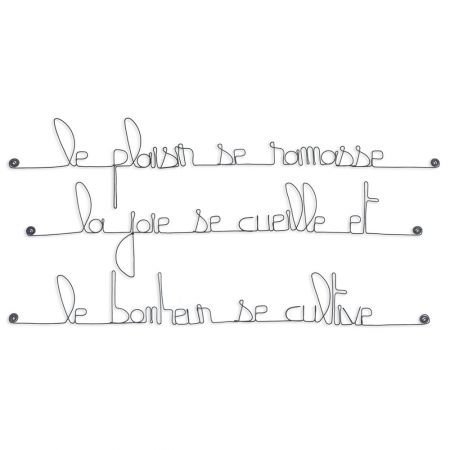 le plaisir se ramasse
la joie se cueille et
le bonheur se cultive